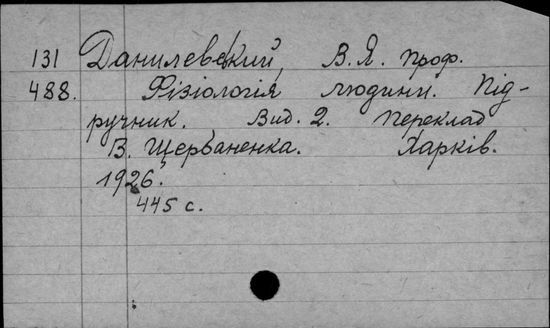 131 Данилевский, В.Я. проф.
488. Фізіологія людини. Під-
ручник. Вид. 2. Переклад
В. Щербаненка. Харків.
1926.
445 с.